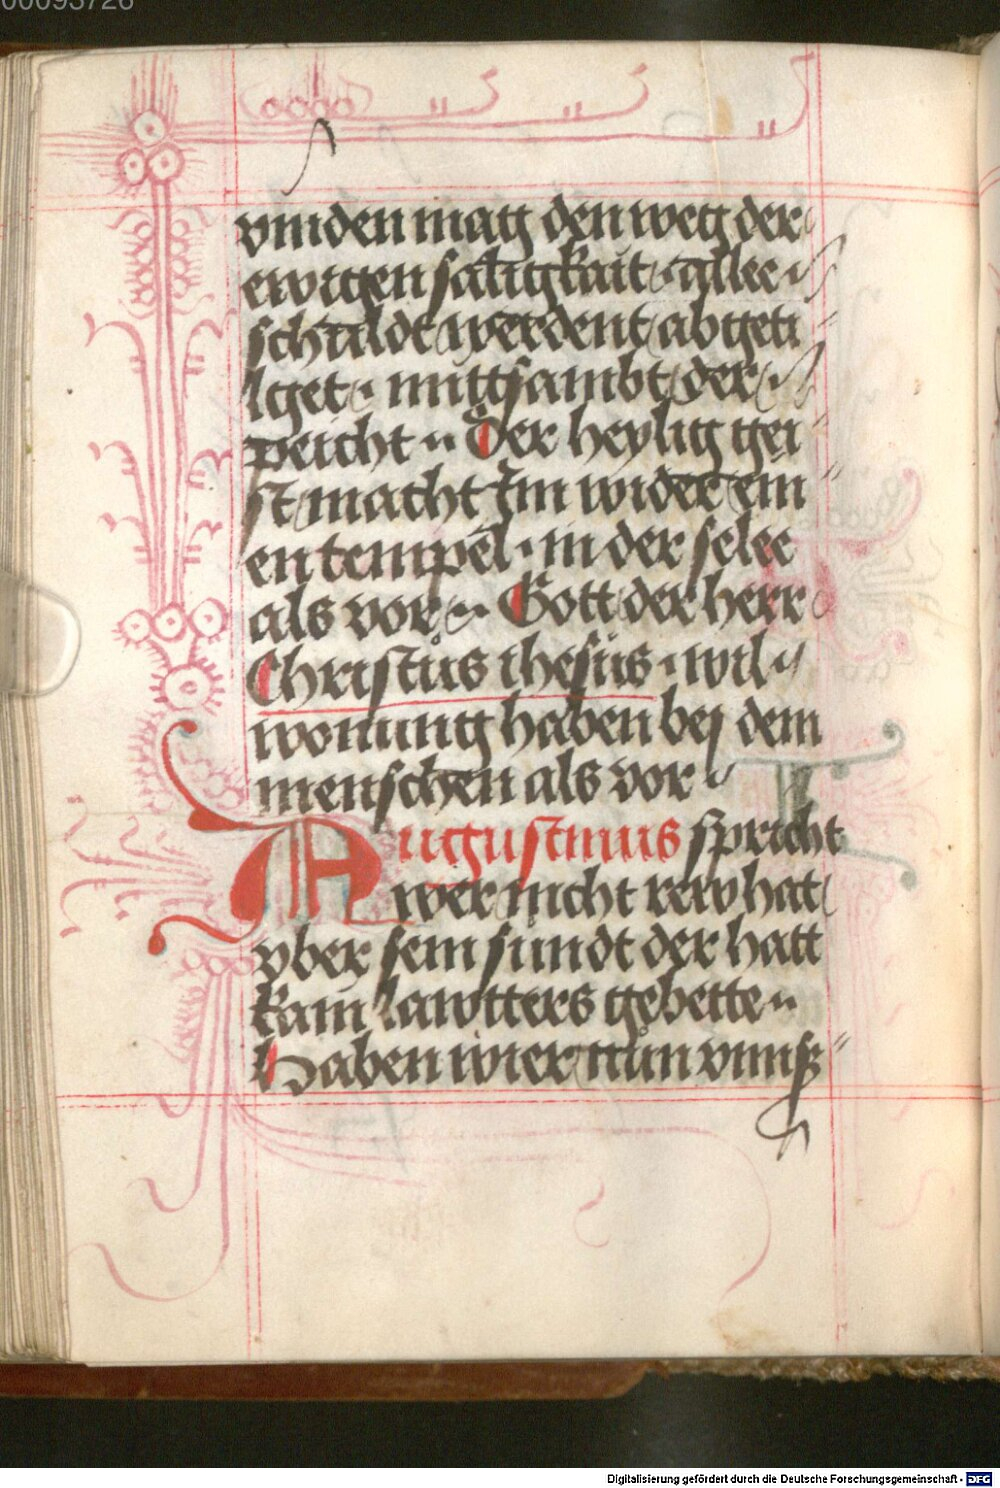 00093726
vinden mag den weg der
ewigen saligkait · allee
schuldt werdent abgeti
lget · mittsambt der
peicht ·· Der heylig gei
st macht Im wider ein
en tempel · in der selee
als vor ·· Gott der herr
Christus ihesus · wil
wonung haben bej dem
menschen als vor
Augustinus spricht
wer nicht rew hat
vber sein sundt der hatt
kain lawtters gebette ··
Haben wier nun vnnß
Digitalisierung gefördert durch die Deutsche Forschungsgemeinschaft - DFG